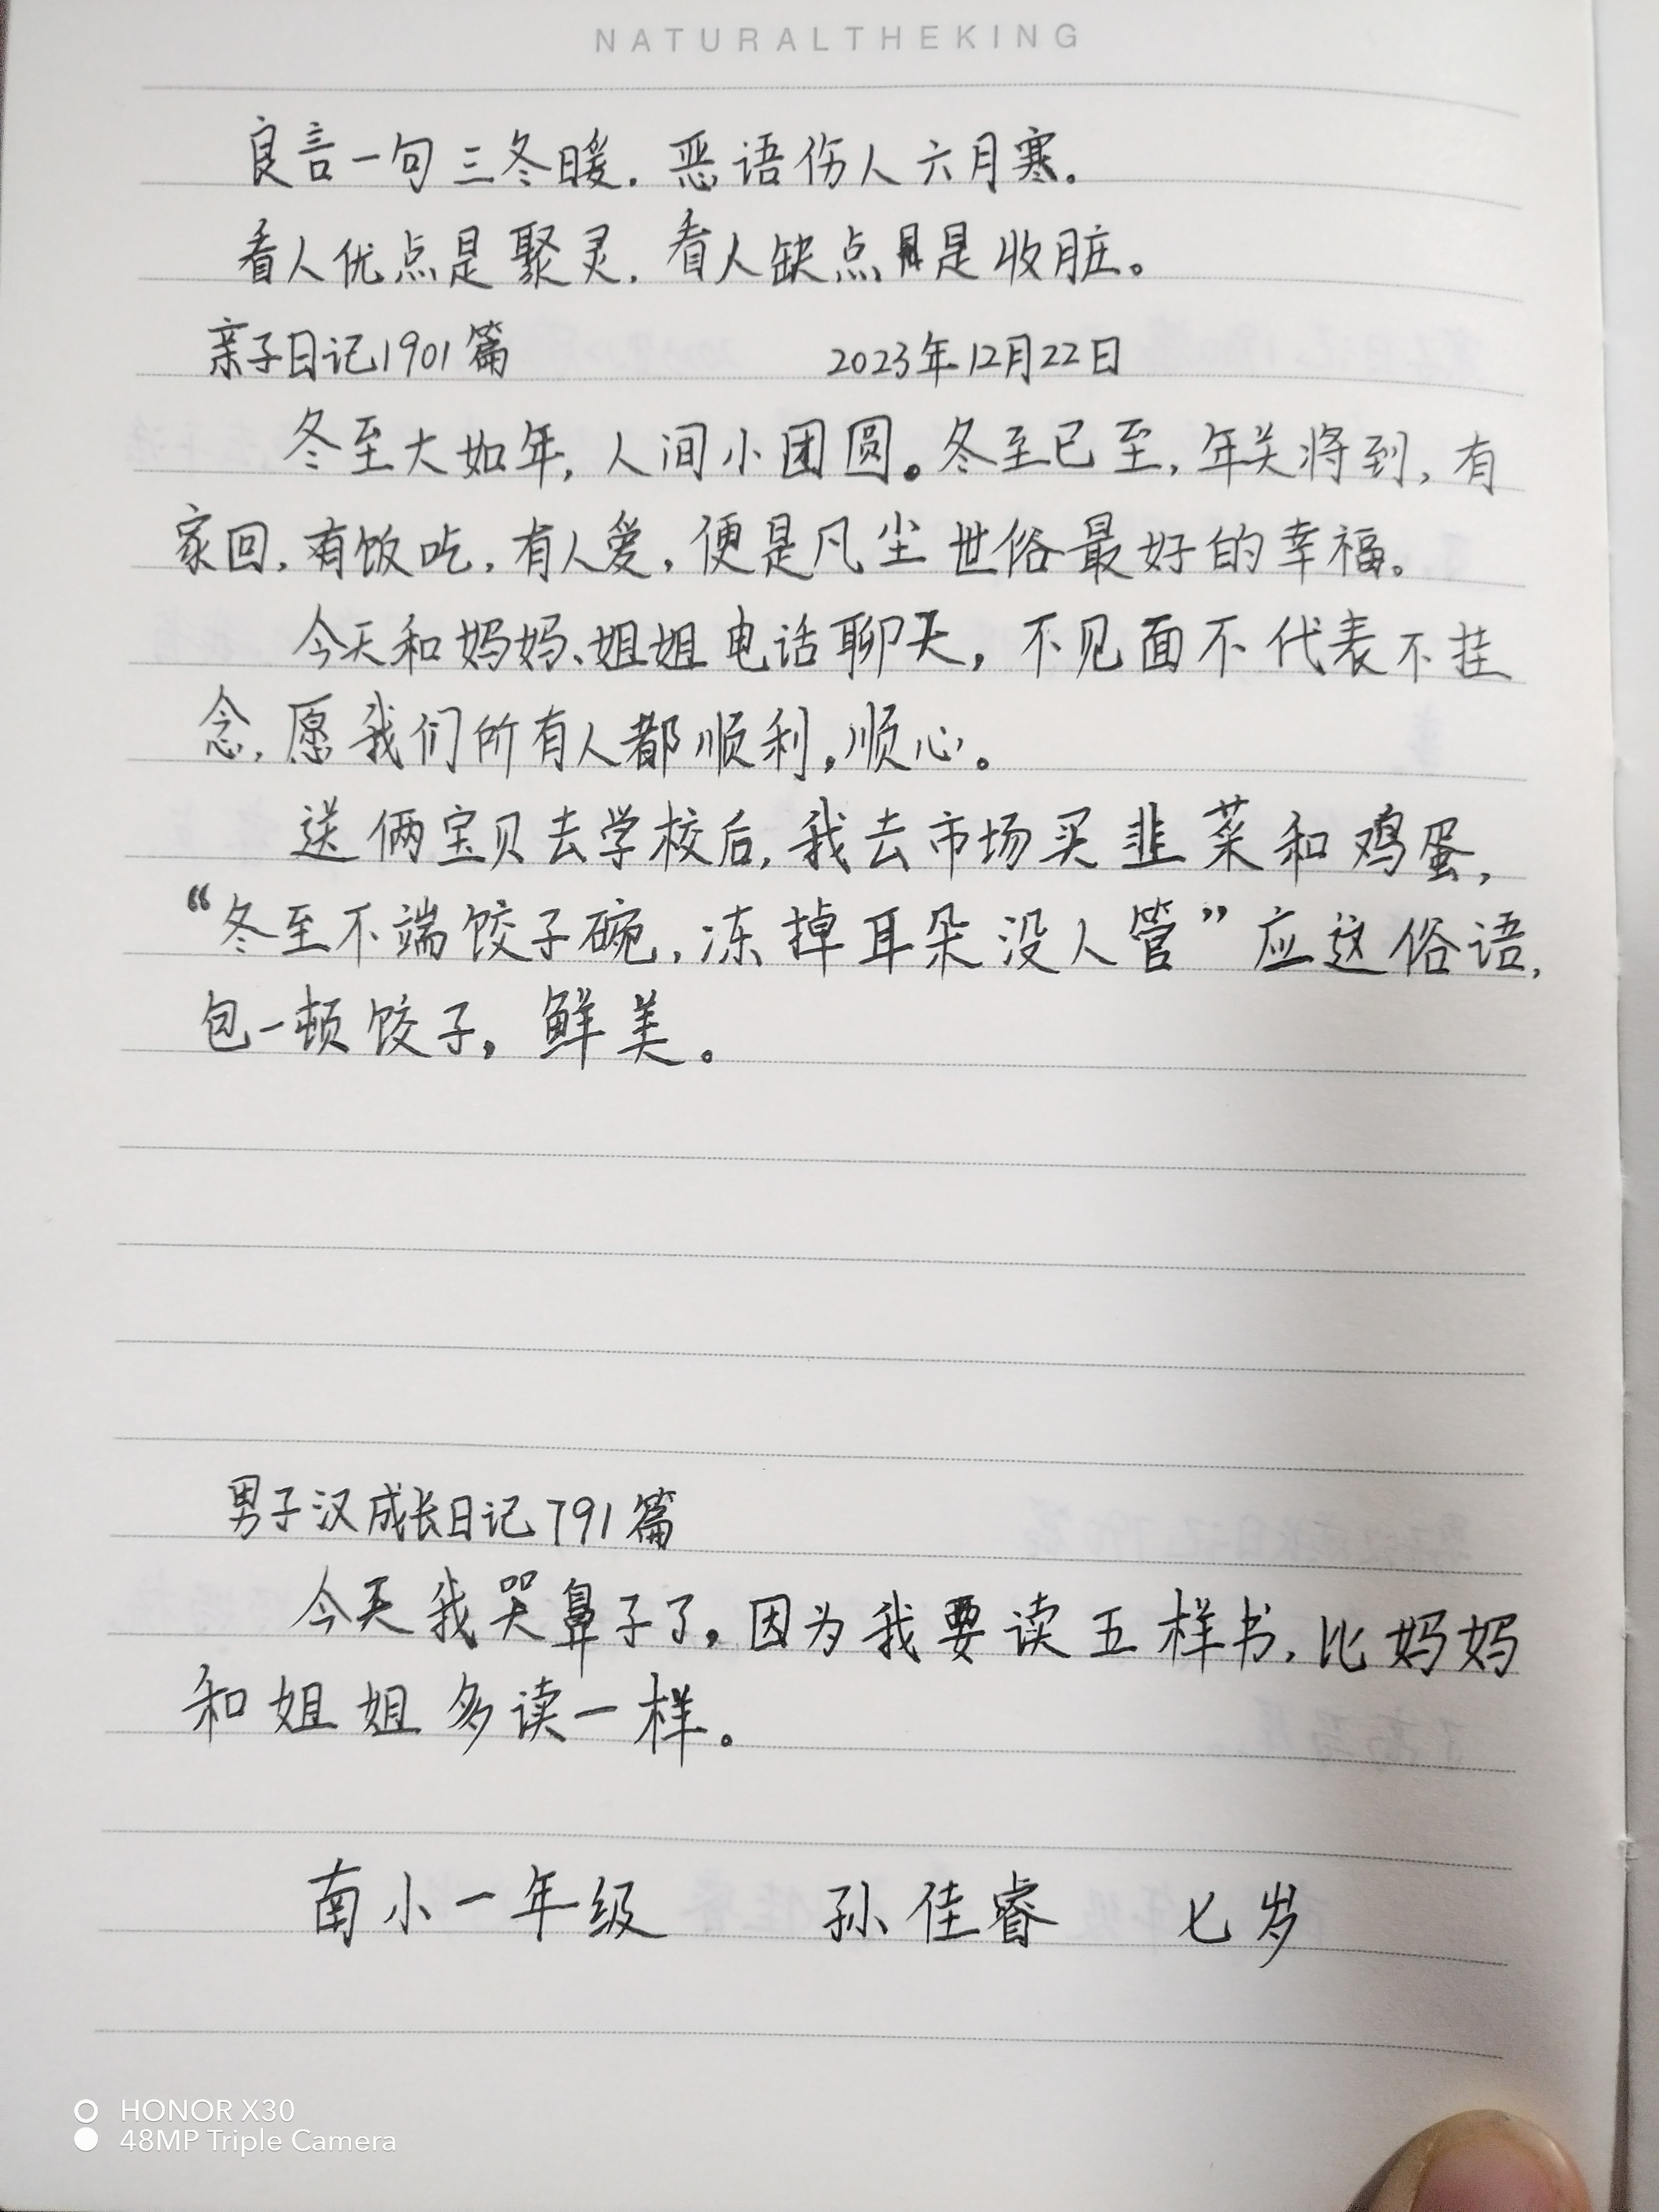 NATURALTHEKING
良言一句三冬暖.恶语伤人六月寒。
看人优点是聚灵.看人缺点是收脏。
亲子日记1901篇 2023年12月22日
冬至大如年,人间小团圆。冬至已至,年关将到,有
家回,有饭吃,有人爱,便是凡尘世俗最好的幸福。
今天和妈妈、姐姐电话聊天,不见面不代表不挂
念,愿我们所有人都顺利,顺心。
送俩宝贝去学校后,我去市场买韭菜和鸡蛋,
“冬至不端饺子碗,冻掉耳朵没人管”应这俗语,
包一顿饺子,鲜美。
男子汉成长日记791篇
今天我哭鼻子了,因为我要读五样书,比妈妈
和姐姐多读一样。
南小一年级 孙佳睿 七岁
HONOR X30
48MP Triple Camera